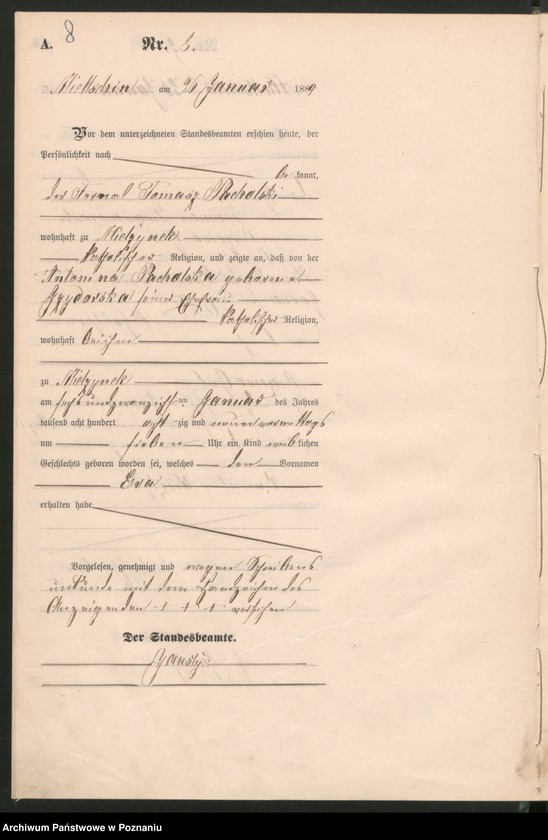 A. 8 Nr. 6.
am 26 Januar 1889
Vor dem unterzeichneten Standesbeamten erschien heute, der
Persönlichkeit nach
be kannt,
der Fornal Tomasz Pacholski
wohnhaft zu Mielzynek
katholischer Religion, und zeigte an, daß von der
Antonina Pacholska geborenen
seiner Ehefrau
katholischer Religion,
wohnhaft bei ihm
zu Mielzynek
am sechsundzwanzigsten Januar des Jahres
tausend acht hundert acht zig und neun vormittags
um sieben Uhr ein Kind weib lichen
Geschlechts geboren worden sei, welches den Vornamen
Eva
erhalten habe
Vorgelesen, genehmigt und wegen Schreibens
unkunde mit dem Handzeichen des
Anzeigenden + + + versehen
Der Standesbeamte.
Archiwum Państwowe w Poznaniu